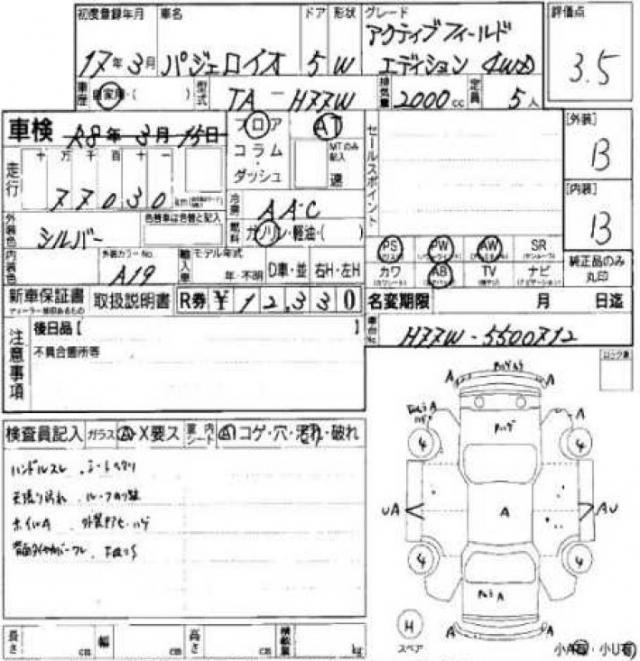 初度登録年月 車名 ドア 形状 グレード 評価点
17年3月 パジェロイオ 5 W アクティブフィールド
エディション 4WD
3.5
車歴 自家用・( ) 型式 TA-H77W 排気量 2000cc 定員 5人
車検 R8年3月15日 フロア AT セールスポイント [外装]
B
走行 十万千百十一 コラム MTのみ記入
ダッシュ 速
77030 km
[内装]
B
冷房 AAC
外装色 シルバー 色替車は色替と記入 燃料 ガソリン・軽油・( )
内装色 外装カラーNo. A19 輸入車 モデル年式 年・不明 D車・並 右H・左H
PS PW AW SR 純正品のみ
カワ AB TV ナビ 丸印
新車保証書 取扱説明書 R券 ¥12,330 名変期限 月 日迄
ディーラー捺印あるもの
注意事項 後日品【 】
不具合箇所等
車台No. H77W-5500712
ロック無
検査員記入 ガラス A・X要ス 室内シート A コゲ・穴・汚れ・破れ
ハンドルスレ
天張り汚れ
ホイルA
A A
A
A
4 4
UA A AU
4 4
A
A A
H
スペア
小A有 小U有
長さ cm 幅 cm 高さ cm 積載量 kg